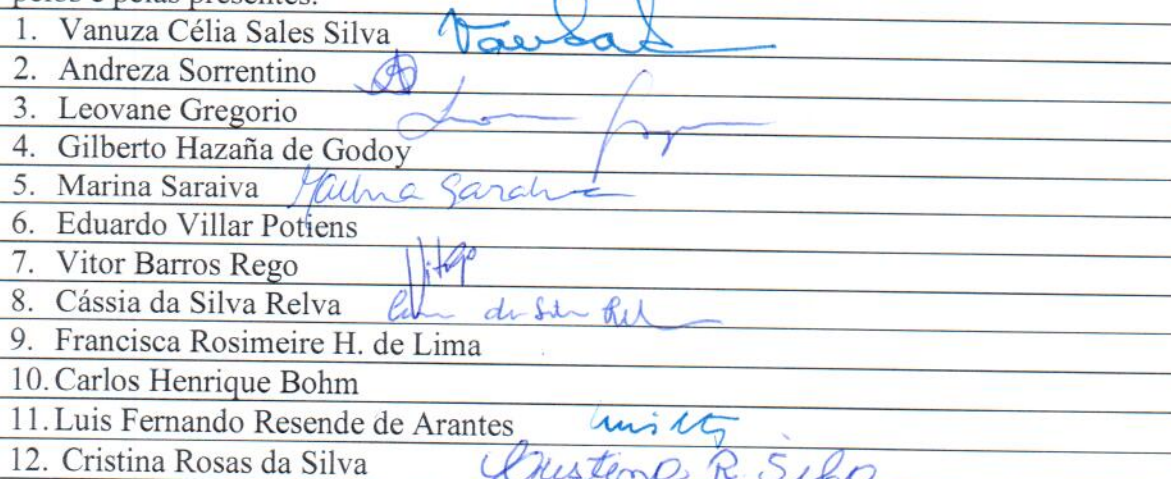 pelos e pelas presentes.
1. Vanuza Célia Sales Silva
2. Andreza Sorrentino
3. Leovane Gregorio
4. Gilberto Hazaña de Godoy
5. Marina Saraiva Marina Saraiva
6. Eduardo Villar Potiens
7. Vitor Barros Rego
8. Cássia da Silva Relva
9. Francisca Rosimeire H. de Lima
10. Carlos Henrique Bohm
11. Luis Fernando Resende de Arantes
12. Cristina Rosas da Silva Cristina R. Silva